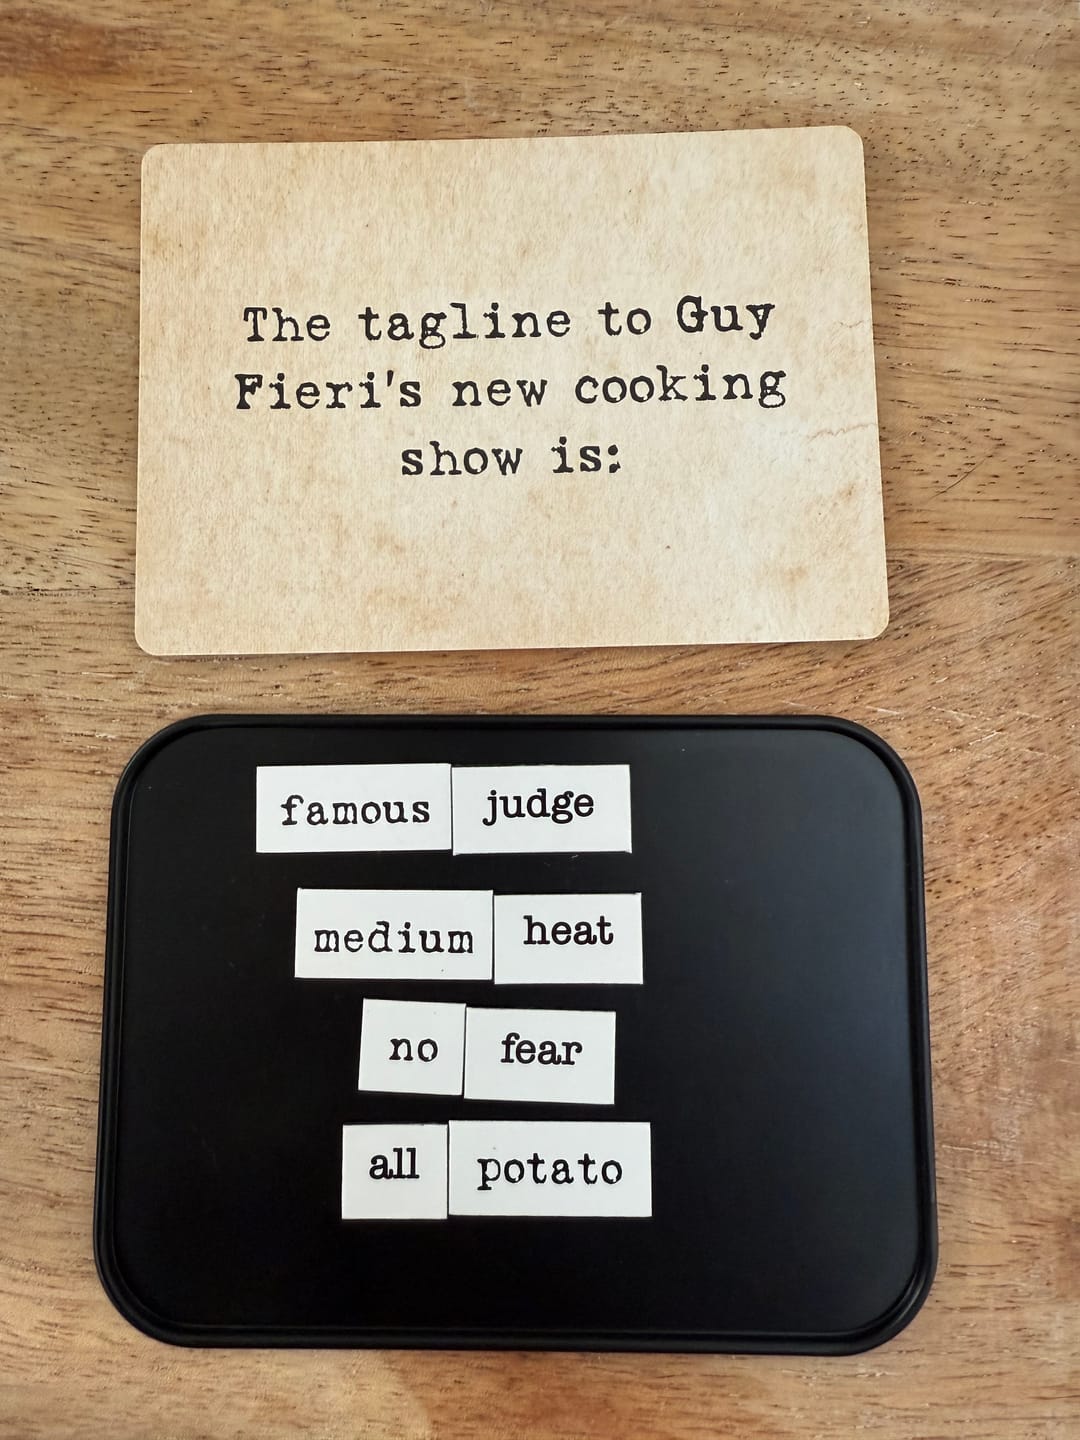 The tagline to Guy
Fieri's new cooking
show is:
famous judge
medium heat
no fear
all potato